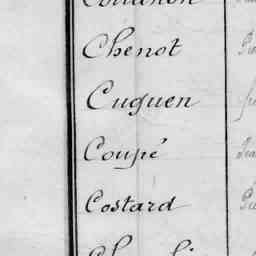 Chenot
Cuguen
Coupé
Costard